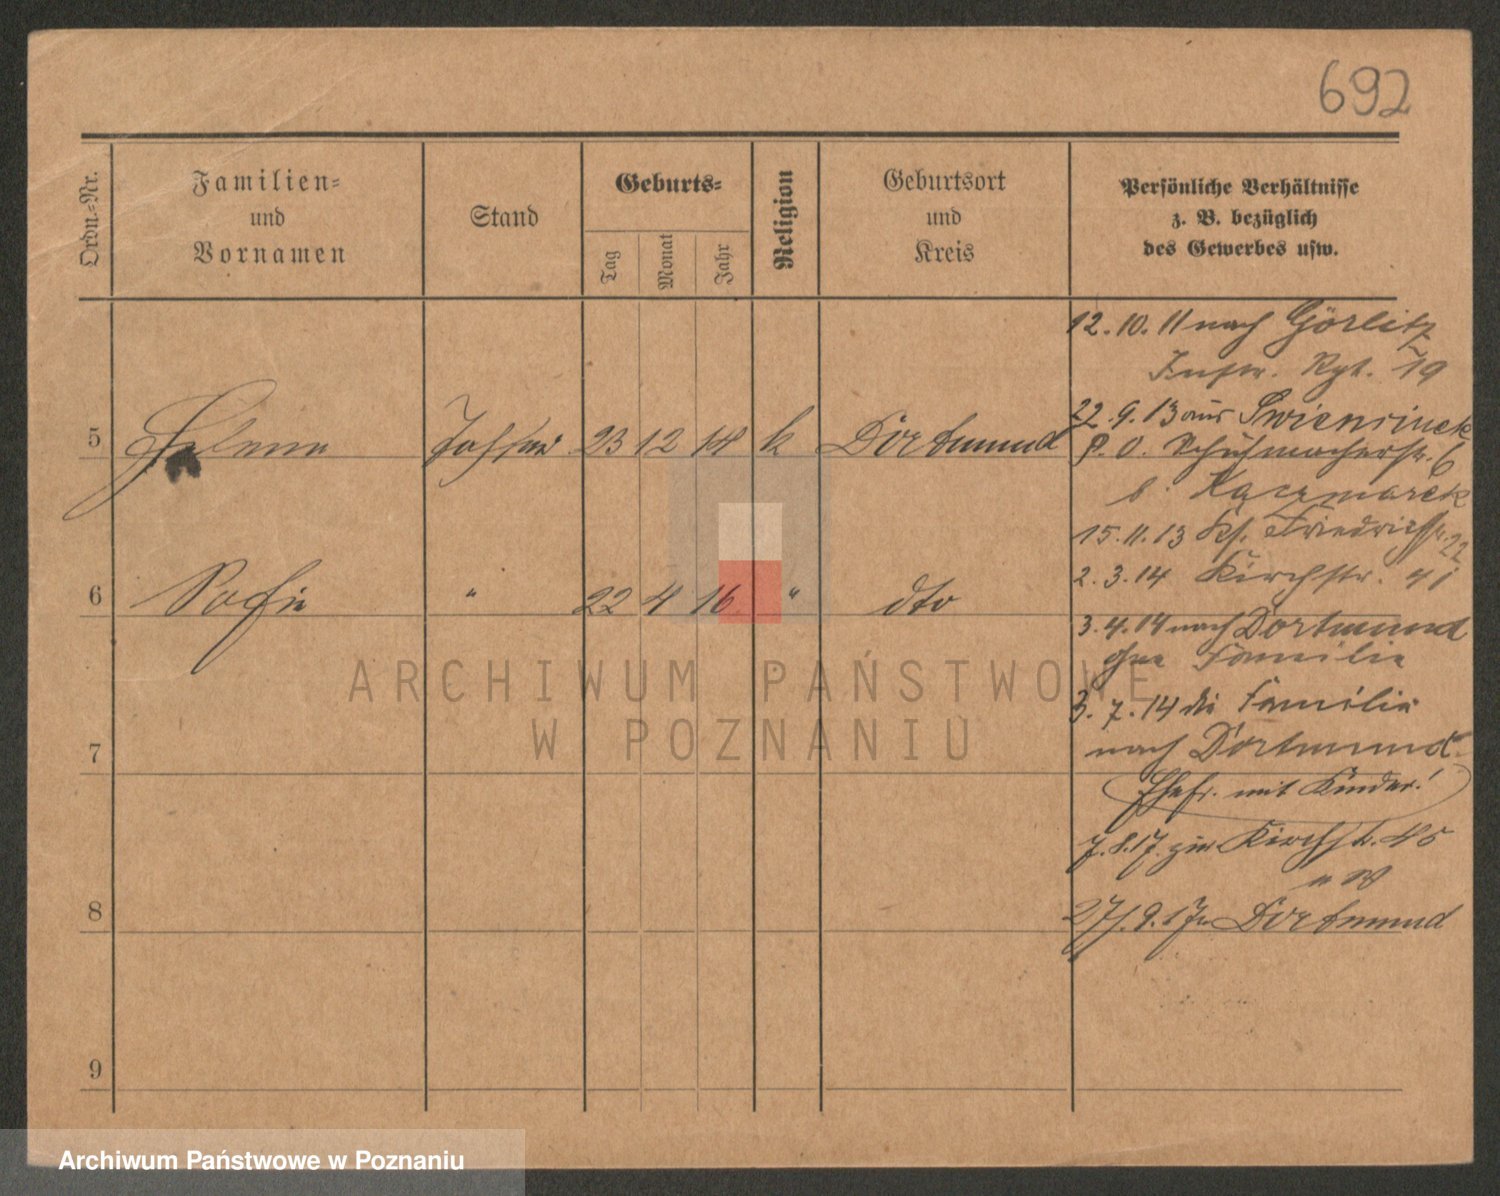 692
Ordn.-Nr.
Familien-
und
Vornamen
Stand
Geburts-
Tag
Monat
Jahr
Religion
Geburtsort
und
Kreis
Persönliche Verhältnisse
z. B. bezüglich
des Gewerbes usw.
12. 10. 11 nach Görlitz
Inftr. Rgt. 19
22. 9. 13 aus Swiensinek
P. O. Schuhmacherstr. 6
b. Kaczmarek
5 Helene Tochter 23 12 14 k Dortmund
15. 11. 13 Friedrichstr. 22
2. 3. 14 Kirchstr. 41
6 Sofie " 22 4 16 " dto
3. 4. 14 nach Dortmund
ohne Familie
3. 7. 14 die Familie
nach Dortmund
Ehefr. mit Kinder!
7
7. 8. 17. zur Kirchstr. 45
27. 9. 17 n Dortmund
8
9
ARCHIWUM PAŃSTWOWE
W POZNANIU
Archiwum Państwowe w Poznaniu